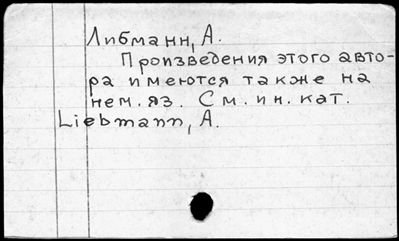 Либманн, А.
Произведения этого авто-
ра имеются также на
нем. яз. См. ин. кат.
Liebmann, A.